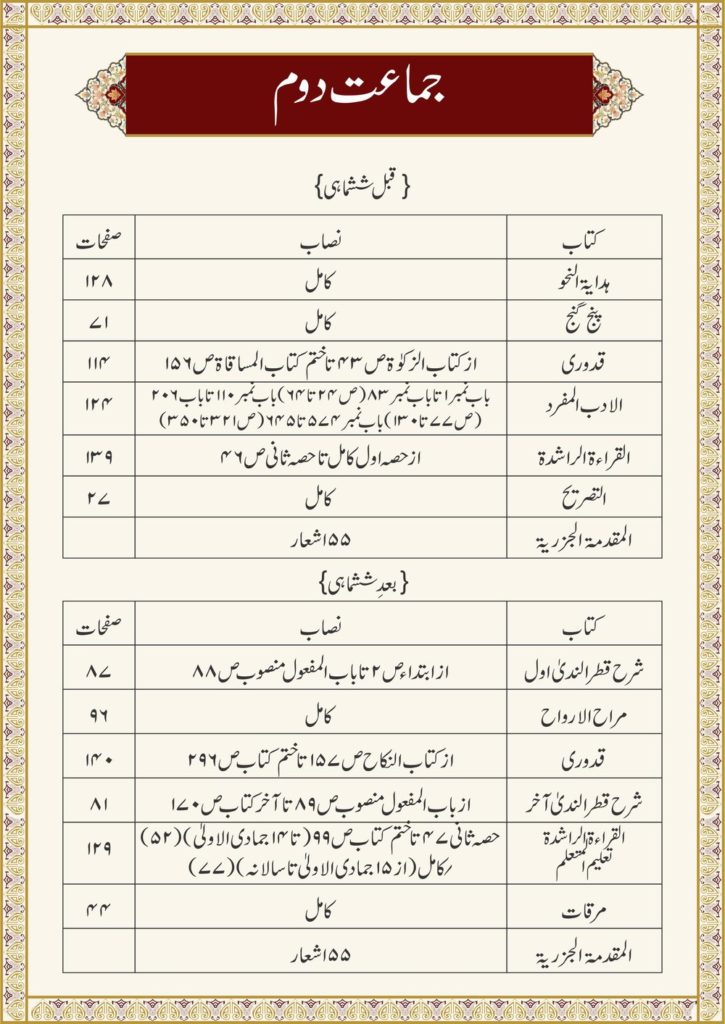 جماعت دوم
{قبل ششماہی}
کتاب نصاب صفحات
ہدایۃ النحو کامل ۱۲۸
پنج گنج کامل ۷۱
قدوری از کتاب الزکوٰۃ ص ۴۳ تا ختم کتاب المساقاۃ ص ۱۵۶ ۱۱۴
الادب المفرد باب نمبر ۱ تا باب نمبر ۸۳ (ص ۲۴ تا ۶۴) باب نمبر ۱۱۰ تا باب ۲۰۶ ۱۲۴
(ص ۷۷ تا ۱۳۰) باب نمبر ۵۷۴ تا ۶۴۵ (ص ۳۲۱ تا ۳۵۰)
القراءۃ الراشدۃ از حصہ اول کامل تا حصہ ثانی ص ۴۶ ۱۳۹
التصریح کامل ۲۷
المقدمۃ الجزریۃ ۵۵ اشعار
{بعدِ ششماہی}
کتاب نصاب صفحات
شرح قطر الندیٰ اول از ابتداء ص ۲ تا باب المفعول منصوب ص ۸۸ ۸۷
مراح الارواح کامل ۹۶
قدوری از کتاب النکاح ص ۱۵۷ تا ختم کتاب ص ۲۹۶ ۱۴۰
شرح قطر الندیٰ آخر از باب المفعول منصوب ص ۸۹ تا آخر کتاب ص ۱۷۰ ۸۱
القراءۃ الراشدۃ حصہ ثانی ۴۷ تا ختم کتاب ص ۹۹ (تا ۱۴ جمادی الاولیٰ) (۵۲) ۱۲۹
تعلیم المتعلم /کامل (از ۱۵ جمادی الاولیٰ تا سالانہ) (۷۷)
مرقات کامل ۴۴
المقدمۃ الجزریۃ ۵۵ اشعار